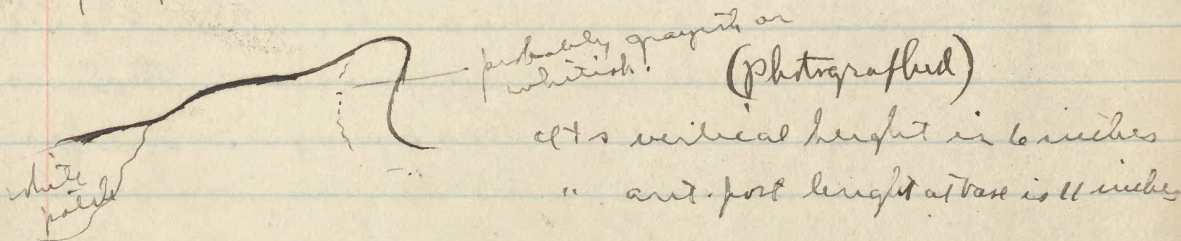 probably grayish or
whitish.
(Photografhed)
Its vertical height is 6 inches
" ant. post lenght at base is 11 inches
white
patch